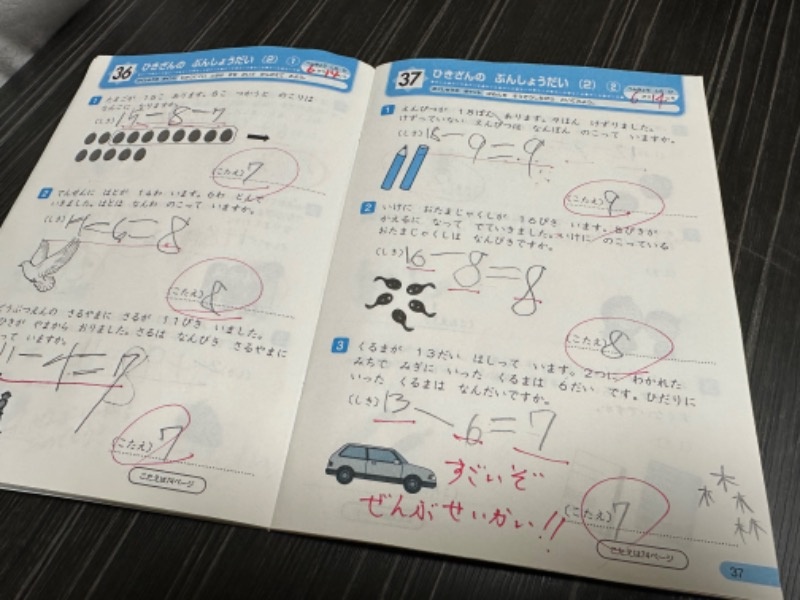 36 ひきざんの ぶんしょうだい (2) ①
6 14
1 たまごが 15こ あります。8こ つかうと のこりは
なんこに なりますか。
(しき) 15-8=7
(こたえ) 7
2 でんせんに はとが 14わ います。6わ とんで
いきました。はとは なんわ のこって いますか。
(しき) 14-6=8
(こたえ) 8
どうぶつえんの さるやまに さるが 11ぴき いました。
ひきが やまから おりました。さるは なんびき さるやまに
って いますか。
11-4=7
(こたえ) 7
こたえは74ページ
37 ひきざんの ぶんしょうだい (2) ②
6 14
1 えんぴつが 18ぽん あります。9ほん けずりました。
けずっていない えんぴつは なんぼん のこって いますか。
(しき) 18-9=9
(こたえ) 9
2 いけに おたまじゃくしが 16ぴき います。8ぴきが
かえるに なって でていきました。いけに のこっている
おたまじゃくしは なんびきですか。
(しき) 16-8=8
(こたえ) 8
3 くるまが 13だい はしって います。2つに わかれた
みちで みぎに いった くるまは 6だい です。ひだりに
いった くるまは なんだいですか。
(しき) 13-6=7
すごいぞ
ぜんぶせいかい!!
(こたえ) 7
木 木
木 林
こたえは74ページ
37